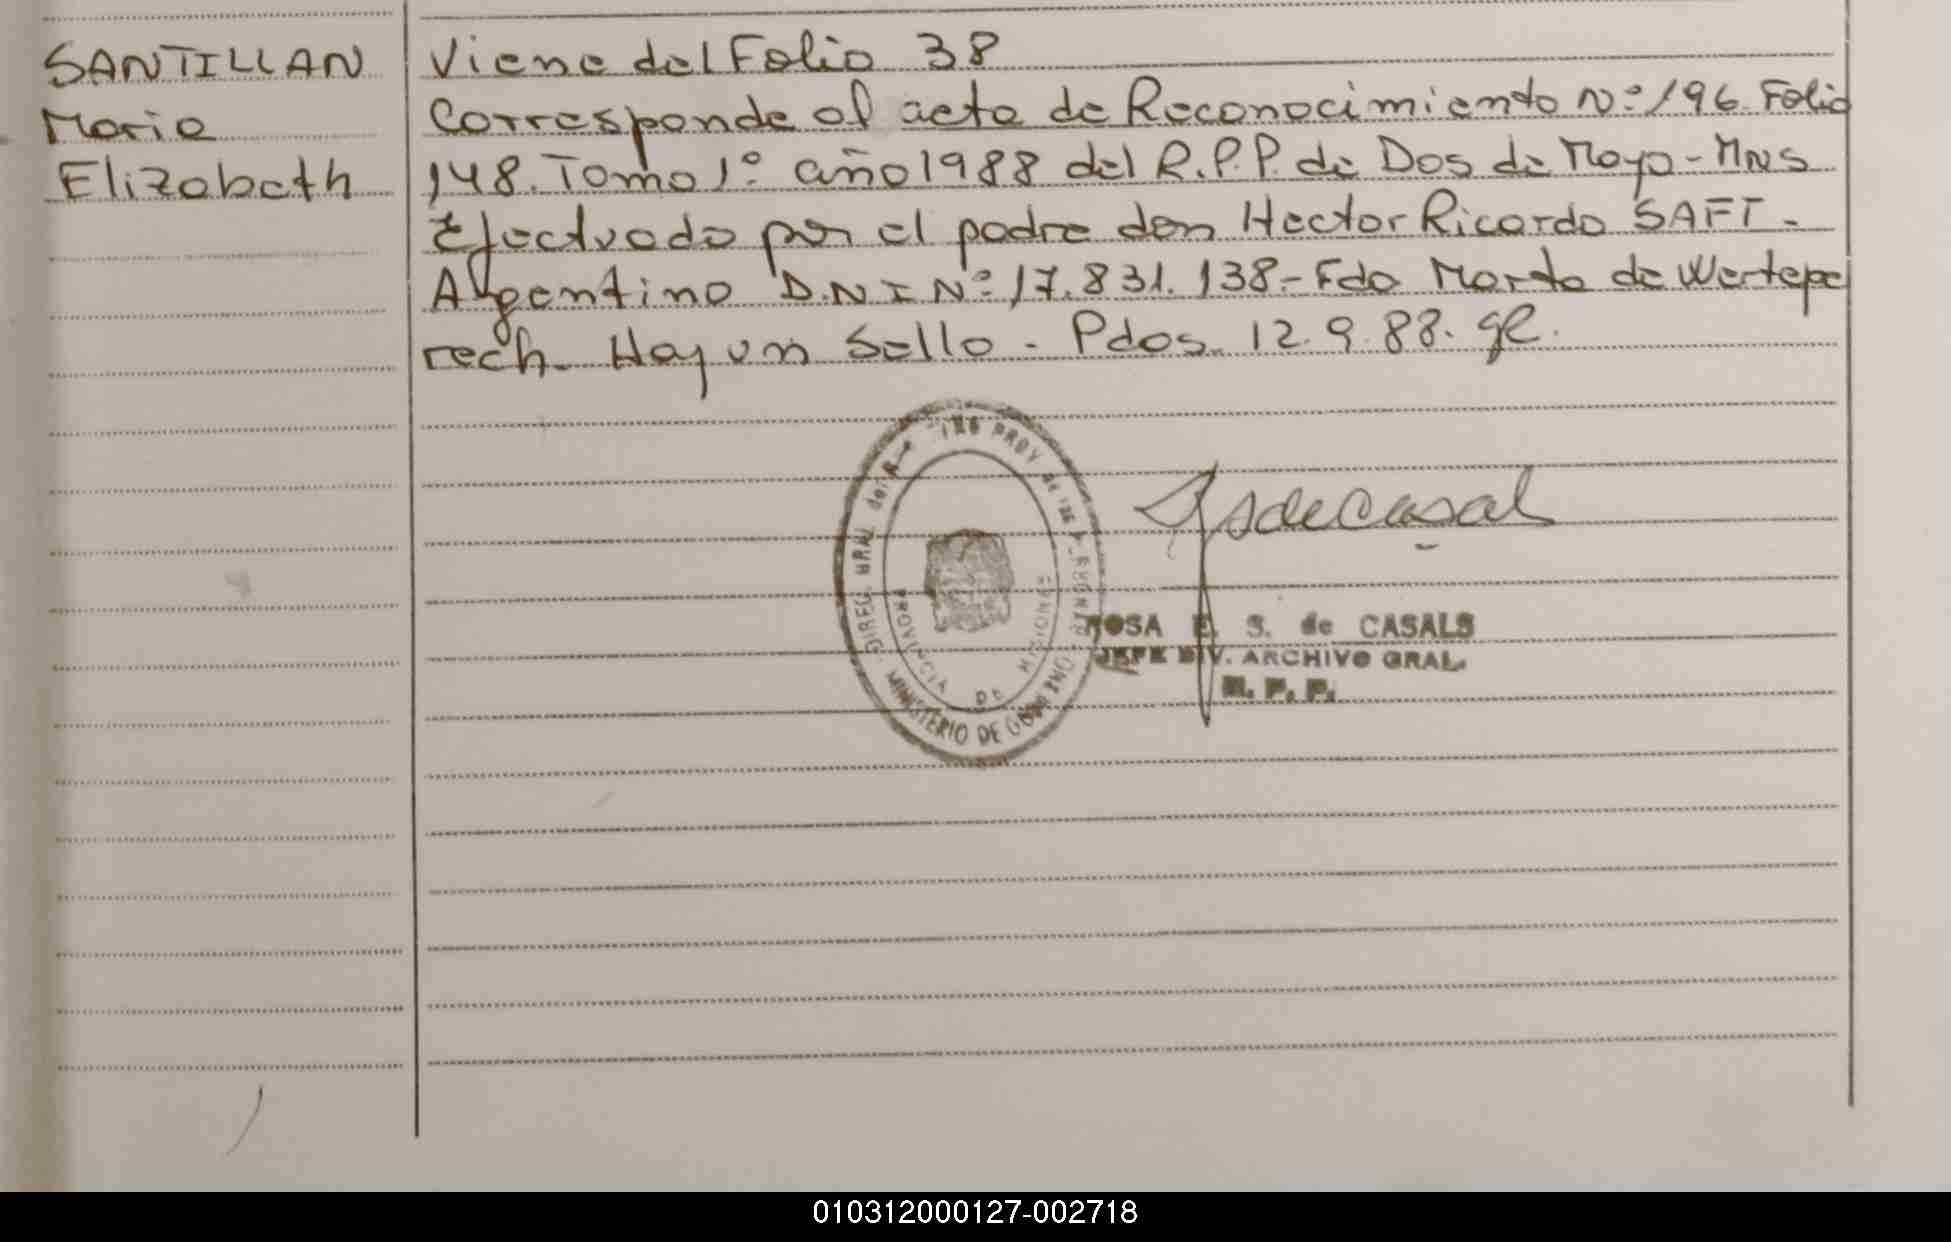 SANTILLAN
Maria
Elizabeth
Viene del Folio 38
Corresponde al acta de Reconocimiento Nº 196. Folio
148. Tomo 1º año 1988 del R.P.P. de Dos de Mayo - Mns
Efectuado por el padre don Hector Ricardo SAFT -
Argentino D.N I Nº 17.831.138 - Fdo Marta de Wertepe
rech. Hay un Sello - Pdos. 12.9.88.
DIREC. GRAL del
PROV DE
MINISTERIO DE GOBIERNO
PROVINCIA DE MISIONES
ROSA E. S. de CASALS
JEFE DIV. ARCHIVO GRAL.
R. P. P.
010312000127-002718